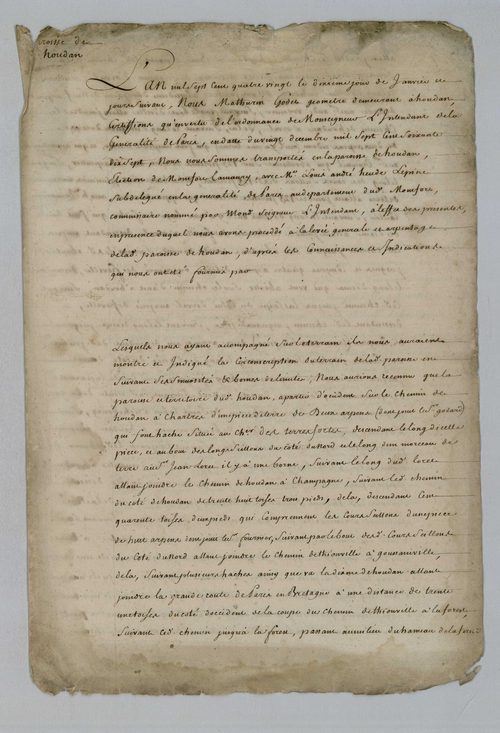 roisse de
houdan
L'AN mil Sept Cent quatre vingt le dixieme jour de Janvier et
jours Suivant, Nous Mathurin Godet geometre demeurant a houdan,
Certiffions qu'en vertu de l'ordonnance de Monseigneur L'Intendant de la
Generalité de Paris, en datte du vingt decembre mil Sept Cent Soixante
dix Sept, Nous nous Sommes transportés en la paroisse de houdan,
Election de Monfort Lamaury, avec Mr Louis andré
Subdelegué en la generalité de Paris au departement dud. Monfort,
commissaire nommé par Mond. Seigneur L'Intendant, à l'effet des presentes
en presence duquel nous avons proceddé à la levée generale et arpentage
de lad. paroisse de houdan, d'après les Connoissances et Indications
qui nous ont eté fournies par
Lesquels nous ayant acompagné Sur le terrain ils nous auroient
montré et Indiqué la Circonscription du terrain de lad. paroisse en
Suivant Ses Sinuosités & bornes de limite; Nous aurions reconnu que la
paroisse et territoire dud. houdan, a partir d'occident Sur le Chemin de
houdan à Chartres d'une piece de terre de Deux arpens (dont jouit le Sr. godard)
qui font hache Situé au Cher des terres fortes, descendant le long d'icelle
piece, et au bout des longs Sillons du Coté du Nord et le long d'un morceau de
terre au Sr. Jean Loré il y a une borne, Suivant le long dud. Loré
allant joindre le Chemin de houdan à Champagne, Suivant led. chemin
du coté de houdan de trente huit toises trois pieds, de là, descendant Cent
quarente toises d'un pieds qui Comprennent les Cours Sillons d'une piece
de huit arpens dont jouit le Sr. fournier, Suivant par le bout desd. Cours Sillons
du Coté du Nord allant joindre le Chemin de thionville à gounauville,
de la, Suivant plusieurs haches ainsy que va la dixme de houdan allant
joindre la grande route de Paris en Bretagne à une distance de trente
une toises du coté d'occident de la coupe du Chemin de thionville à la forest,
Suivant led. chemin jusqu'à la forest, passant au milieu du hameau de la forest